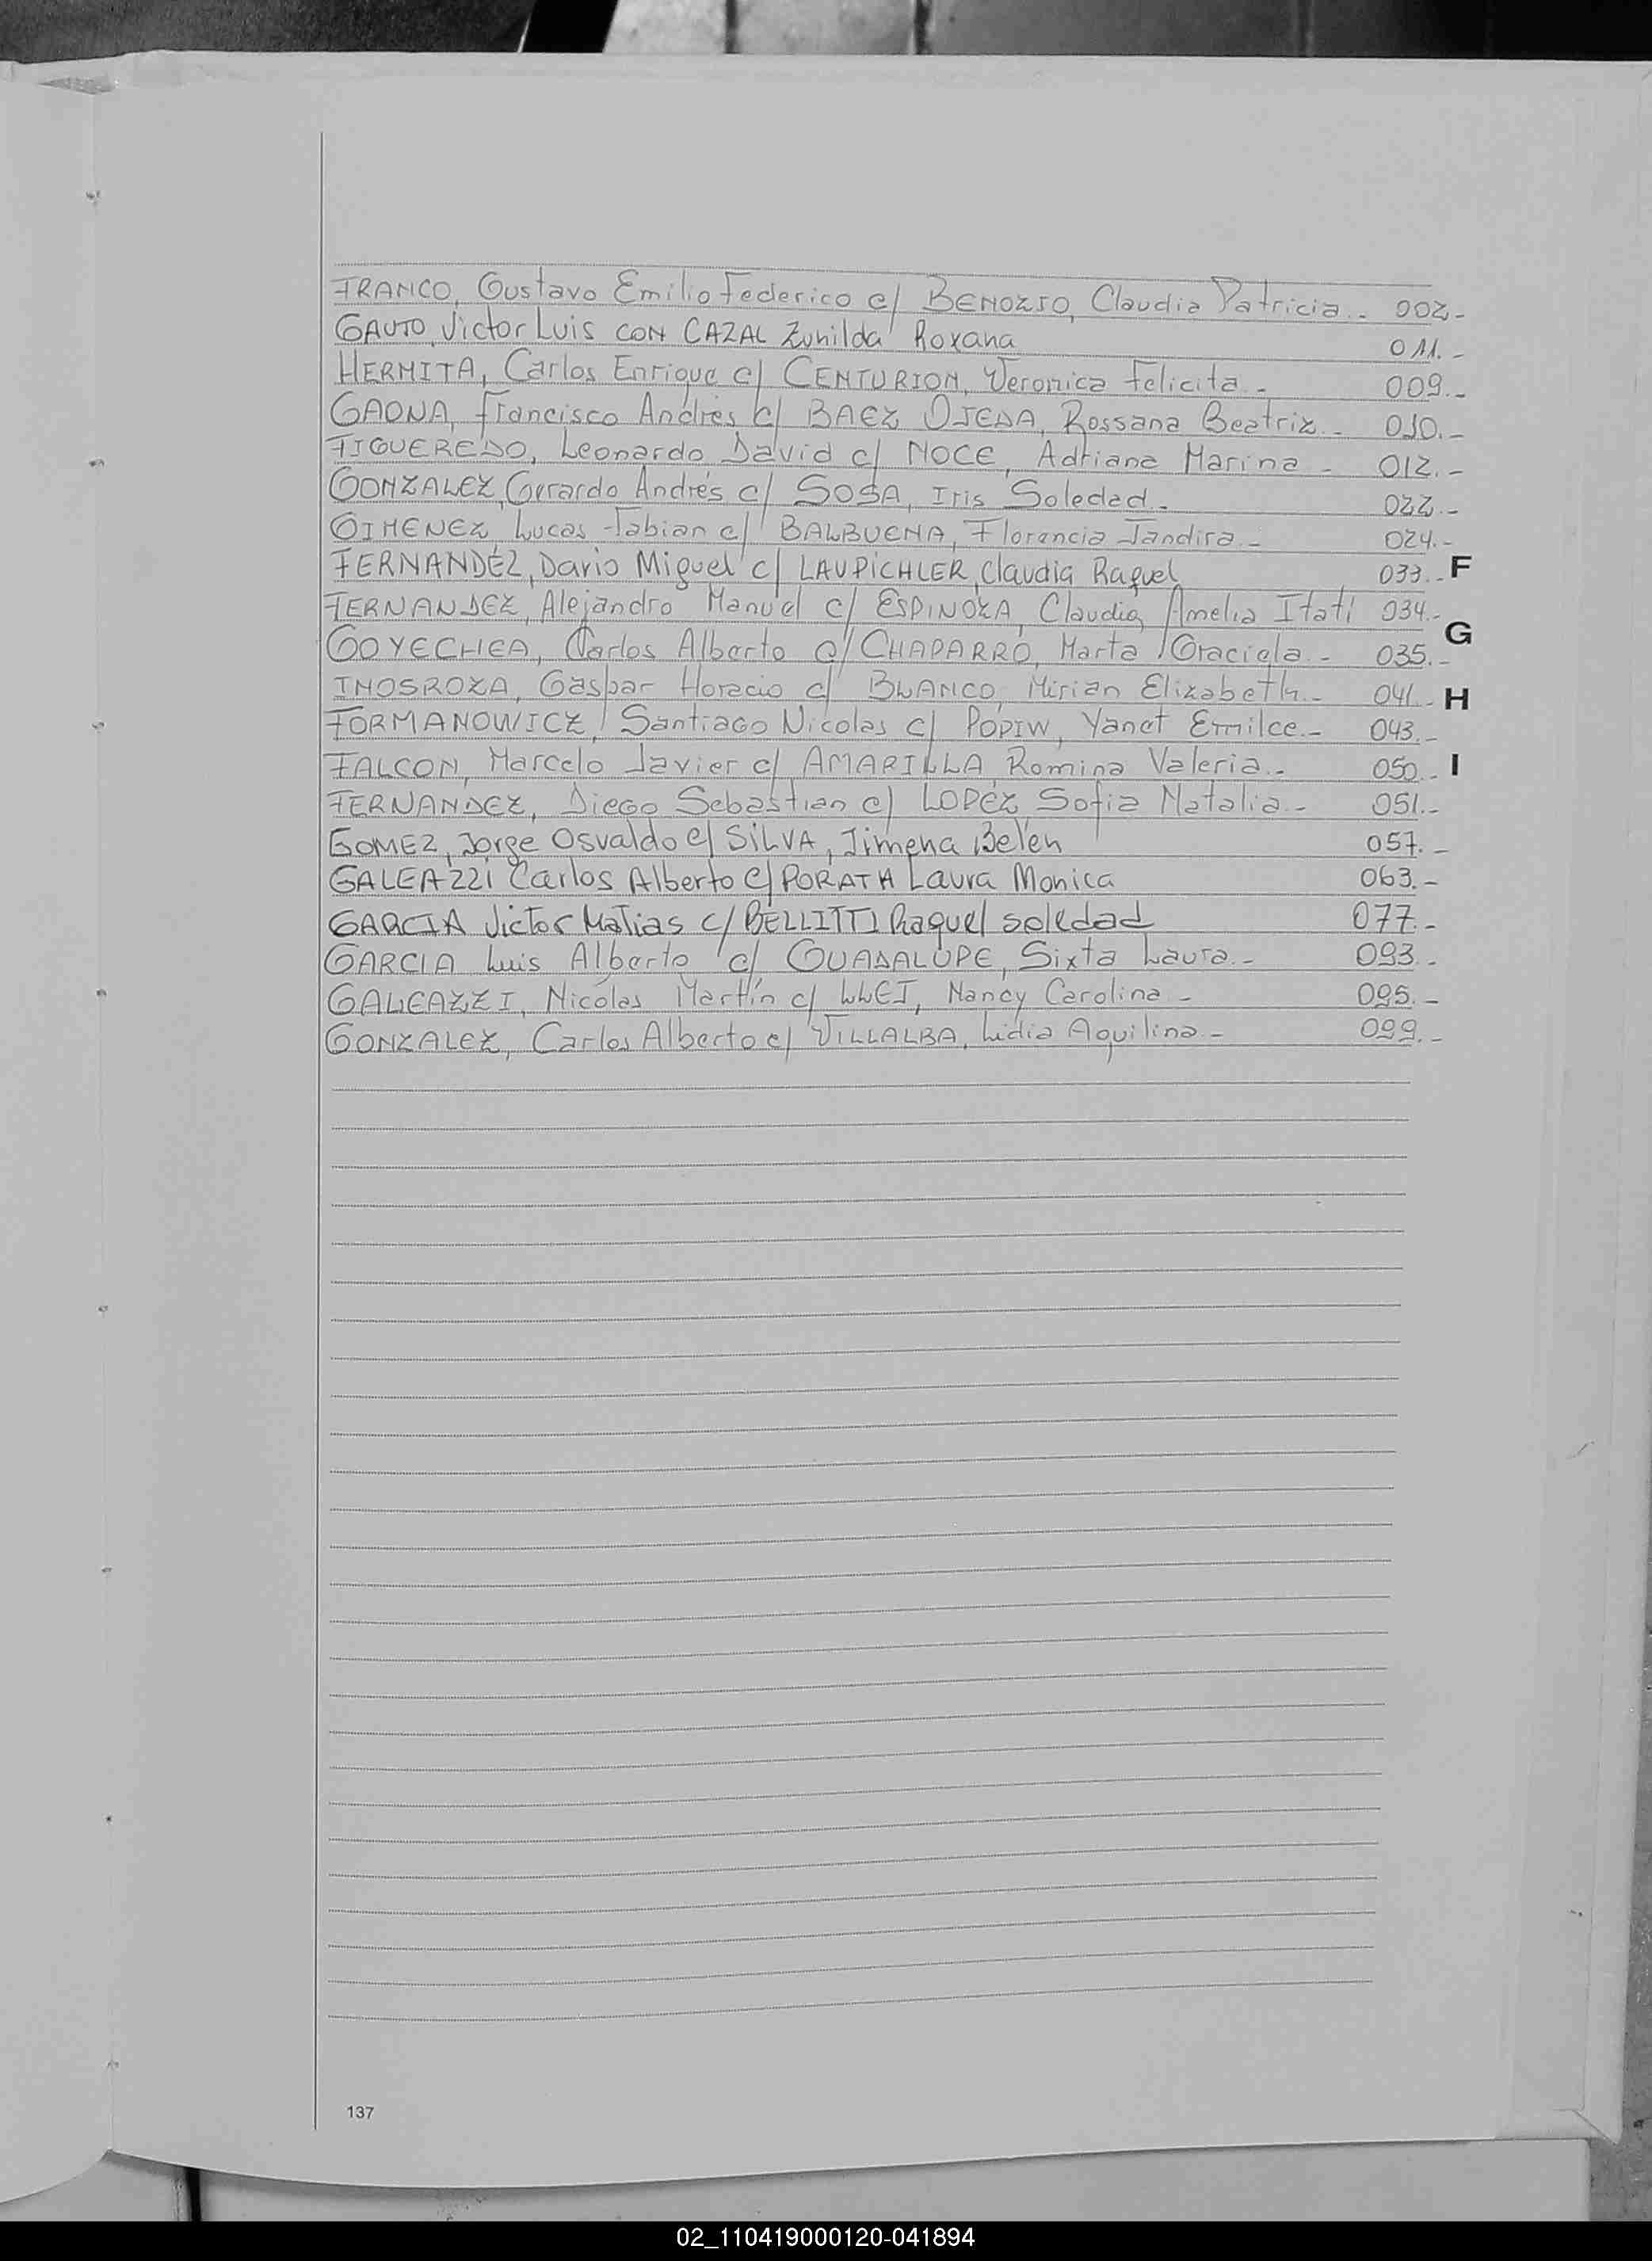 FRANCO, Gustavo Emilio Federico c/ BENOZSO, Claudia Patricia.- 002.-
GAUTO, Victor Luis CON CAZAL Zunilda Roxana 011.-
HERMITA, Carlos Enrique c/ CENTURION, Veronica Felicita.- 009.-
GAONA, Francisco Andrés c/ BAEZ OJEDA, Rossana Beatriz.- 010.-
FIGUEREDO, Leonardo David c/ NOCE, Adriana Marina.- 012.-
GONZALEZ, Gerardo Andrés c/ SOSA, Iris Soledad.- 022.-
GIMENEZ, Lucas Fabian c/ BALBUENA, Florencia Jandira.- 024.-
FERNANDEZ, Dario Miguel c/ LAUPICHLER, Claudia Raquel 033.- F
FERNANDEZ, Alejandro Manuel c/ ESPINOZA, Claudia Amelia Itatí 034.-
GOYECHEA, Carlos Alberto c/ CHAPARRO, Marta Graciela.- 035.- G
INOSROZA, Gaspar Horacio c/ BLANCO, Mirian Elizabeth.- 041.- H
FORMANOWICZ, Santiago Nicolas c/ POPIW, Yanet Emilce.- 043.-
FALCON, Marcelo Javier c/ AMARILLA, Romina Valeria.- 050.- I
FERNANDEZ, Diego Sebastian c/ LOPEZ, Sofia Natalia.- 051.-
GOMEZ, Jorge Osvaldo c/ SILVA, Jimena Belén 057.-
GALEAZZI Carlos Alberto c/ PORATH Laura Monica 063.-
GARCIA Victor Matias c/ BELLITTI Raquel soledad 077.-
GARCIA Luis Alberto c/ GUADALUPE, Sixta Laura.- 093.-
GALEAZZI, Nicolas Martín c/ LLEI, Nancy Carolina.- 095.-
GONZALEZ, Carlos Alberto c/ VILLALBA, Lidia Aquilina.- 099.-
137
02_110419000120-041894